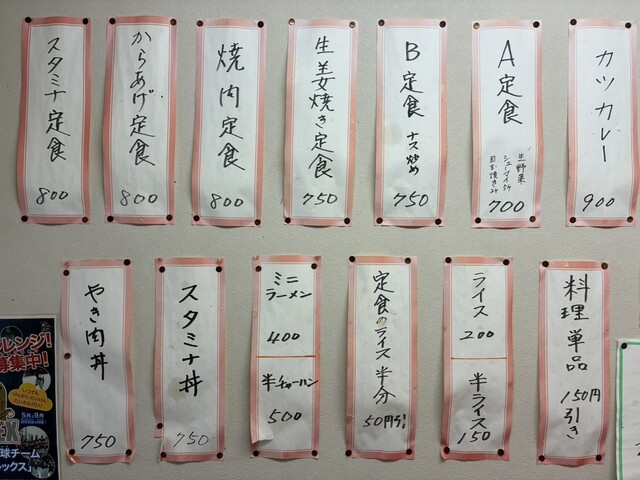 カツカレー
900
A定食
生野菜
シューマイ5ケ
目玉焼き2ケ
700
B定食
ナス炒め
750
生姜焼き定食
750
焼肉定食
800
からあげ定食
800
スタミナ定食
800
料理単品
150円
引き
ライス
200
半ライス
150
定食のライス半分
50円引
ミニ
ラーメン
400
半チャーハン
500
スタミナ丼
750
やき肉丼
750
レンジ!
募集中!
5月9月
球チーム
ックス」